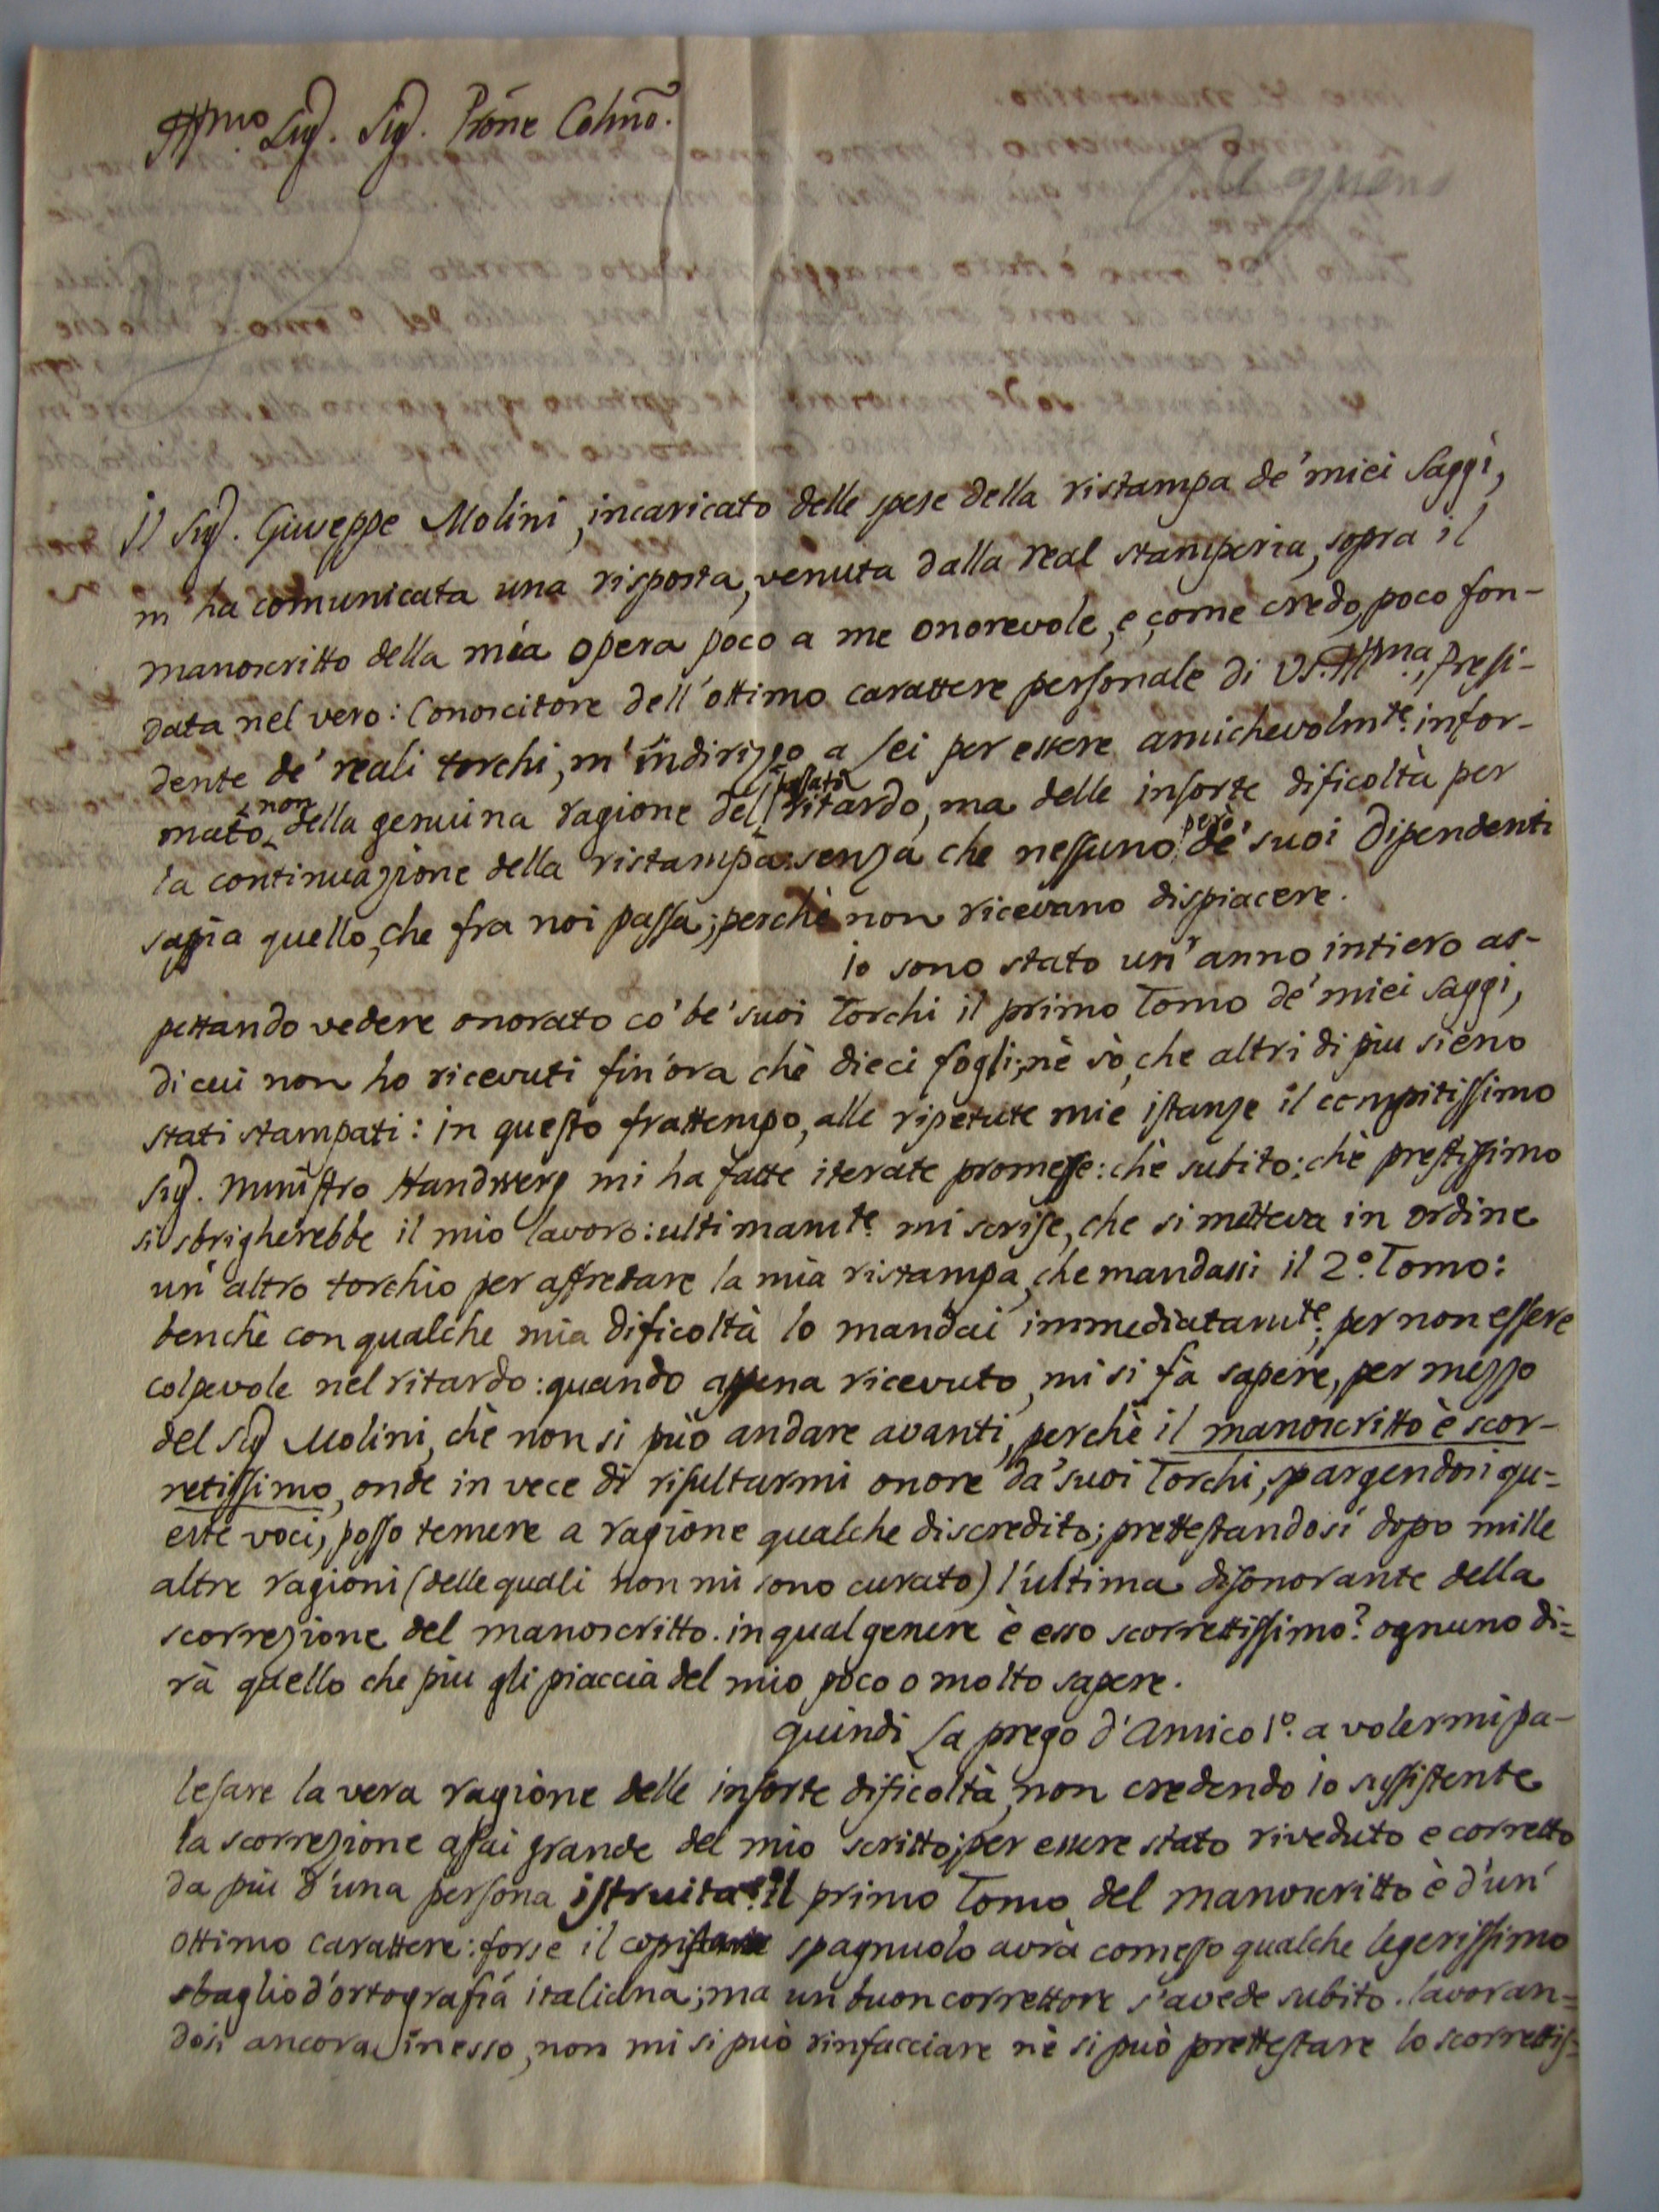 Illmo. Sig. Sig. Prōne Colmō.
Il Sig. Giuseppe Molini, incaricato delle spese della ristampa de' miei Saggi,
m' ha comunicata una risposta, venuta dalla real stamperia, sopra il
manoscritto della mia opera poco a me onorevole, e come credo, poco fon-
data nel vero: Conoscitore dell' ottimo carattere personale di VS. Illma., Presi-
dente de' reali torchi, m' indirizzo a Lei per essere amichevolmte. infor-
mato non della genuina ragione del passato ritardo, ma delle insorte dificoltà per
la continuazione della ristampa: senza che nessuno però de' suoi Dipendenti
sappia quello, che fra noi passa; perchè non ricevano dispiacere.
io sono stato un' anno intiero as-
pettando vedere onorato co' be' suoi Torchi il primo Tomo de' miei Saggi,
di cui non ho ricevuti fin' ora chè dieci fogli; nè sò, che altri di piu sieno
stati stampati: in questo frattempo, alle ripetute mie istanze il compitissimo
Sig. Ministro Handwerg mi ha fatte iterate promesse: chè subito; chè prestissimo
si sbrigherebbe il mio lavoro: ultimamte. mi scrisse, che si metteva in ordine
un' altro torchio per affretare la mia ristampa, che mandassi il 2º. Tomo:
benchè con qualche mia dificoltà lo mandai immediatamte., per non essere
colpevole nel ritardo: quando appena ricevuto, mi si fà sapere, per mezzo
del Sig Molini, chè non si può andare avanti, perchè il manoscritto è scor-
retissimo, onde in vece di risultarmi onore da' suoi Torchi, spargendosi qu-
este voci, posso temere a ragione qualche discredito; prettestandosi dopo mille
altre ragioni (delle quali non mi sono curato) l'ultima disonorante della
scorrezione del manoscritto. in qual genere è esso scorrettissimo? ognuno di-
rà quello che piu gli piaccia del mio poco o molto sapere.
quindi La prego d'Amico 1º. a volermi pa-
lesare la vera ragione delle insorte dificoltà, non credendo io sussistente
la scorrezione assai grande del mio scritto; per essere stato riveduto e corretto
da piu d'una persona istruita: il primo Tomo del manoscritto è d'un'
ottimo carattere: forse il copista spagnuolo avrà comesso qualche legerissimo
sbaglio d'ortografia italiana; ma un buon correttore s'avede subito. lavoran-
dosi ancora in esso, non mi si può rinfacciare nè si può prettestare lo scorrettis-